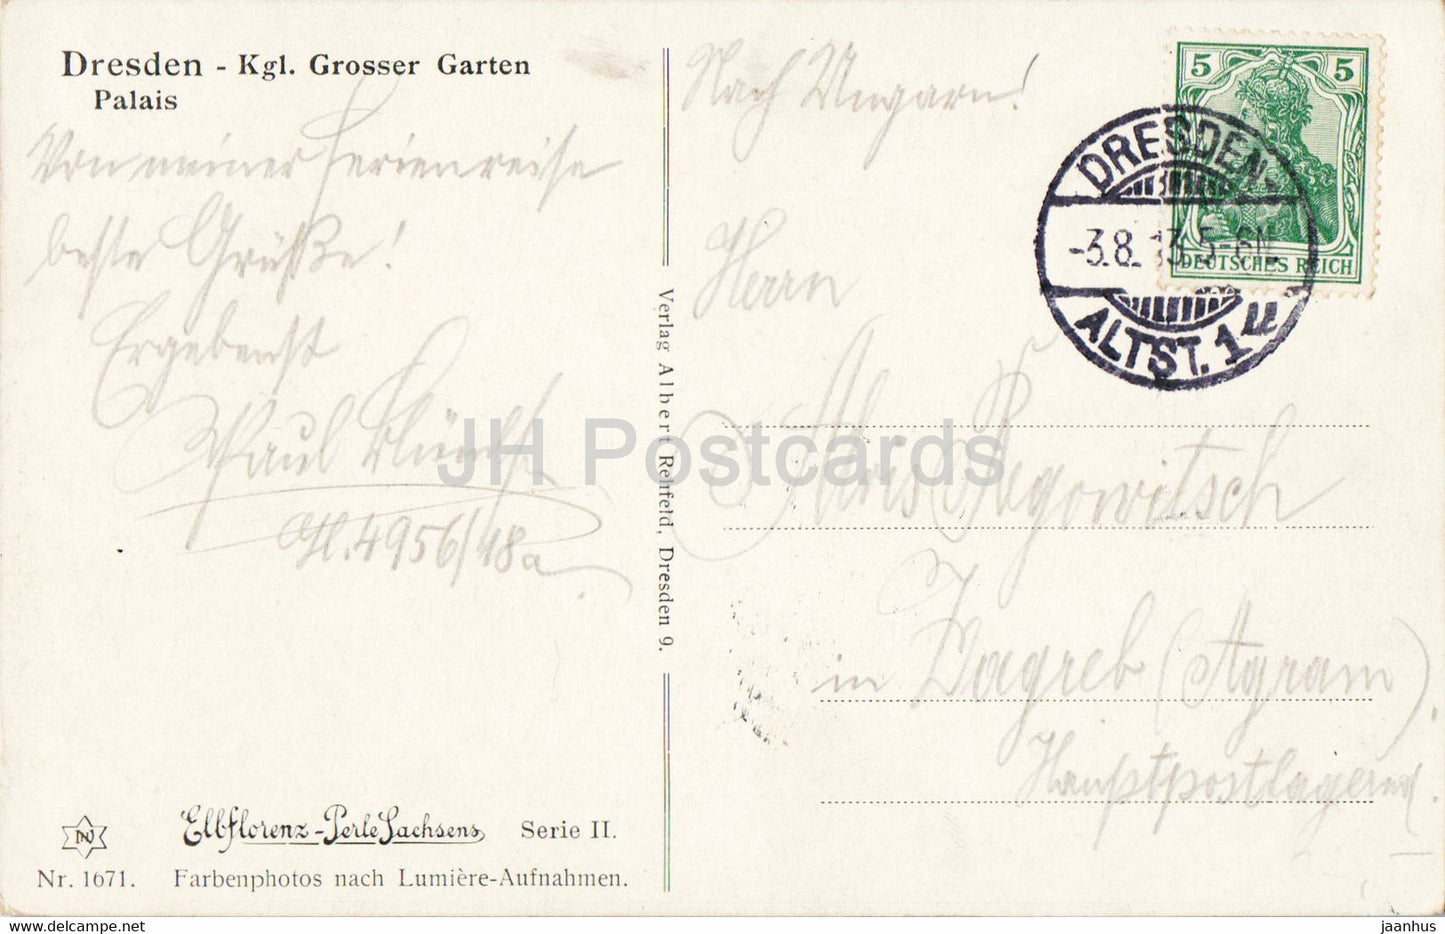 Dresden - Kgl. Grosser Garten
Palais
Von meiner Ferienreise
beste Grüße!
Ergebenst
Paul
H. 4956/18a
Elbflorenz-Perle Sachsens Serie II.
Nr. 1671. Farbenphotos nach Lumière-Aufnahmen.
Verlag Albert Rehfeld, Dresden 9.
Nach Ungarn!
5 5
DEUTSCHES REICH
DRESDEN-
-3.8.13.5-6N.
ALTST. 1 u
Herrn
Alois Regowitsch
in Zagreb (Agram).
Hauptpostlagernd.
JH Postcards
www.delcampe.net
jaanhus